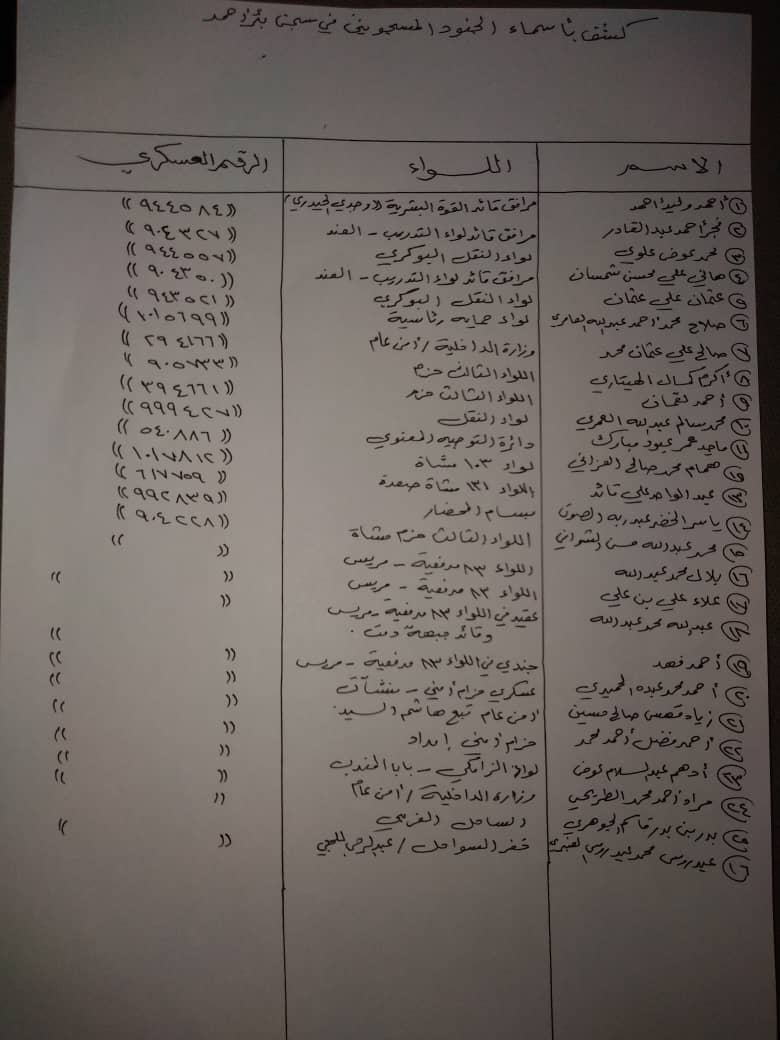 كشف بأسماء الجنود المسجونين في سجن بئر أحمد
الاسم اللواء الرقم العسكري
١ أحمد وليد أحمد مرافق قائد القوة البشرية ((وجدي الحيدري)) ((٩٤٤٥٨٤))
٢ فجر أحمد عبدالقادر مرافق قائد لواء التدريب - العند ((٩٠٤٣٢٧))
٣ محمد عوض علوي لواء النقل البوكري ((٩٤٤٥٥٧))
٤ هاني علي محسن شمسان مرافق قائد لواء التدريب - العند ((٩٠٤٣٥٠))
٥ عثمان علي عثمان لواء النقل البوكري ((٩٤٣٥٢١))
٦ صلاح محمد أحمد عبدالله العامري لواء حماية رئاسية ((١٠١٥٦٩٩))
٧ صالح علي عثمان محمد وزارة الداخلية / أمن عام ((٢٩٤١٦٦))
٨ أكرم كمال الهيتاري اللواء الثالث حزم ((٩٠٥٧٣٣))
٩ أحمد لقمان اللواء الثالث حزم ((٣٩٤٦٦١))
١٠ محمد سالم عبدالله العمري لواء النقل ((٩٩٩٤٢٧))
١١ ماجد عمر عبود مبارك دائرة التوجيه المعنوي ((٥٤٠٨٨٦))
١٢ همام محمد صالح العزاني لواء ١٠٣ مشاة ((١٠١٧٨١٢))
١٣ عبدالواحد علي قائد اللواء ١٣١ مشاة صعدة ((٦١٧٧٥٩))
١٤ ياسر الخضر عبدربه بسام المحضار ((٩٩٢٨٣٩))
١٥ محمد عبدالله حسن الشواني اللواء الثالث حزم مشاة ((٩٠٤٢٢٨))
١٦ بلال محمد عبدالله اللواء ٨٣ مدفعية - مريس (( ))
١٧ علاء علي بن علي اللواء ٨٣ مدفعية - مريس (( ))
١٨ عبدالله محمد عبدالله عقيد في اللواء ٨٣ مدفعية - مريس (( ))
وقائد جبهة دمت.
١٩ أحمد فهد جندي في اللواء ٨٣ مدفعية - مريس (( ))
٢٠ أحمد محمد عبده الحميدي عسكري حزام أمني - منشآت (( ))
٢١ زياد صالح حسين أمن عام تبع هاشم السيد. (( ))
٢٢ أحمد فضل أحمد محمد حزام أمني إمداد (( ))
٢٣ أدهم عبدالسلام عوض لواء الزامكي - باب المندب (( ))
٢٤ مراد أحمد محمد الطريحي وزارة الداخلية / أمن عام (( ))
٢٥ بدر بن بدر قاسم الجوهري الساحل الغربي (( ))
٢٦ عيدروس محمد عيدروس خفر السواحل / ((